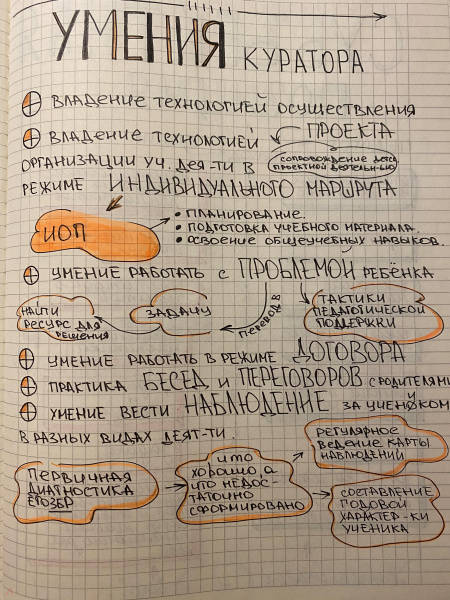 УМЕНИЯ КУРАТОРА
ВЛАДЕНИЕ ТЕХНОЛОГИЕЙ ОСУЩЕСТВЛЕНИЯ
ПРОЕКТА
ВЛАДЕНИЕ ТЕХНОЛОГИЕЙ
СОПРОВОЖДЕНИЕ ДЕТСК
ПРОЕКТНОЙ ДЕЯТЕЛЬН-ЫЮ
ОРГАНИЗАЦИИ УЧ. ДЕЯ-ТИ В
РЕЖИМЕ ИНДИВИДУАЛЬНОГО МАРШРУТА
ИОП
• ПЛАНИРОВАНИЕ.
• ПОДГОТОВКА УЧЕБНОГО МАТЕРИАЛА.
• ОСВОЕНИЕ ОБЩЕУЧЕБНЫХ НАВЫКОВ.
УМЕНИЕ РАБОТАТЬ С ПРОБЛЕМОЙ РЕБЁНКА
НАЙТИ
РЕСУРС ДЛЯ
РЕШЕНИЯ
ЗАДАЧУ
ПЕРЕВОД В
ТАКТИКИ
ПЕДАГОГИЧЕСКОЙ
ПОДДЕРЖКИ
УМЕНИЕ РАБОТАТЬ В РЕЖИМЕ ДОГОВОРА
ПРАКТИКА БЕСЕД И ПЕРЕГОВОРОВ С РОДИТЕЛЯМИ
УМЕНИЕ ВЕСТИ НАБЛЮДЕНИЕ ЗА УЧЕНИКОМ
В РАЗНЫХ ВИДАХ ДЕЯТ-ТИ.
ПЕРВИЧНАЯ
ДИАГНОСТИКА
ЧТО
ХОРОШО, А
ЧТО НЕДОС-
ТАТОЧНО
СФОРМИРОВАНО
РЕГУЛЯРНОЕ
ВЕДЕНИЕ КАРТЫ
НАБЛЮДЕНИЙ
СОСТАВЛЕНИЕ
ГОДОВОЙ
ХАРАКТЕР-КИ
УЧЕНИКА